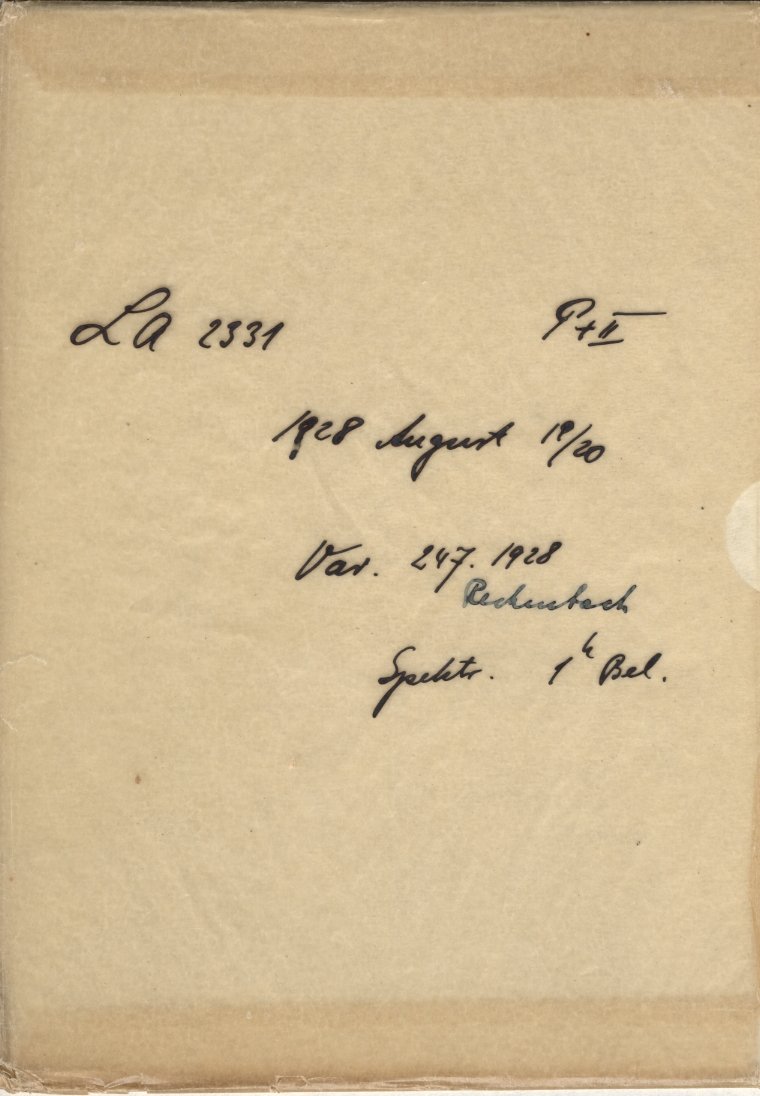 LA 2331 P+II
1928 August 19/20
Var. 247. 1928
Reckenbach
Spektr. 1h Bel.